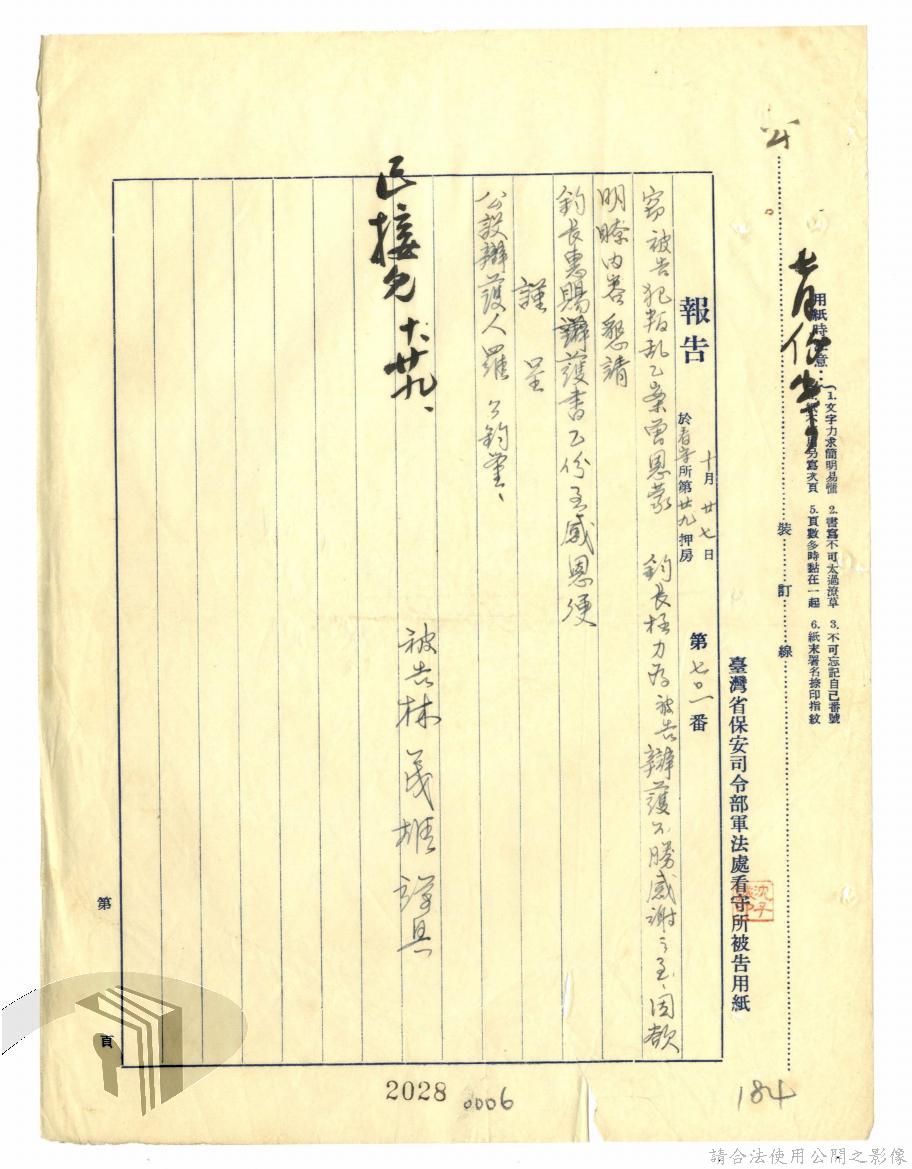 用紙時注意：
1.文字力求簡明易懂 2.書寫不可太過潦草 3.不可忘記自己番號
紙不另寫次頁 5.頁數多時黏在一起 6.紙末署名捺印指紋
裝訂線
臺灣省保安司令部軍法處看守所被告用紙
報告 十月廿七日 於看守所第廿九押房 第七〇一番
竊被告犯叛乱乙案曾恩蒙 鈞長極力為被告辯護不勝感謝之至、因欲
明瞭內容懇請
鈞長惠賜辯護書乙份至感恩便
謹呈
公設辯護人羅 公鈞鑒、
已接見 十、廿九、
被告林茂雄謹具
第 頁
2028
0006
184
請合法使用公開之影像